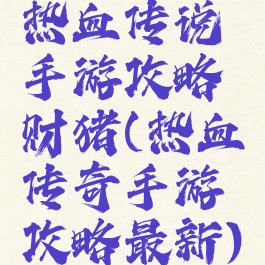 热血传说
手游攻略
财猪(热血
传奇手游
攻略最新)